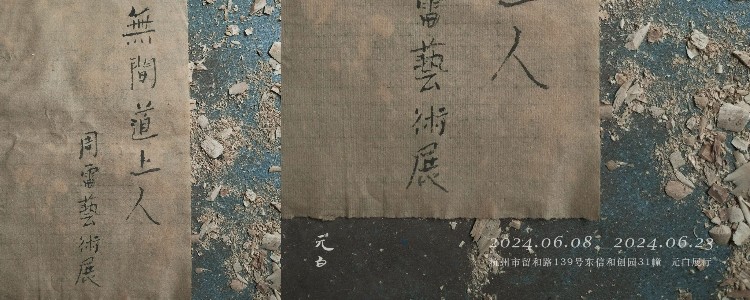 無間道上人
周雷藝術展
人
藝術展
元白
2024.06.08 2024.06.23
杭州市留和路139号东信和创园31幢 元白展厅